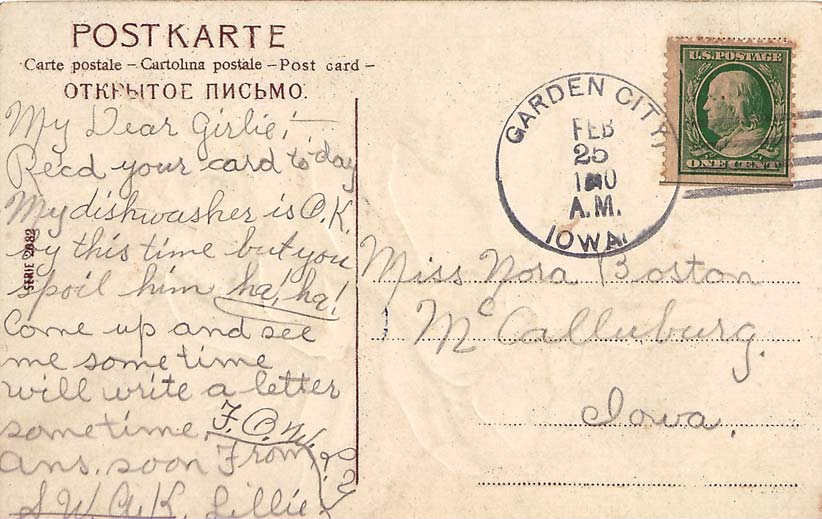 POSTKARTE
Carte postale – Cartolina postale – Post card –
ОТКРЫТОЕ ПИСЬМО.
My Dear Girlie,–
Recd your card to day
My dishwasher is O.K.
by this time but you
spoil him ha! ha!
Come up and see
me some time
will write a letter
sometime. F.O.W.
Ans. soon From
S.W.A.K. Lillie
SERIE 2082
GARDEN CITY,
FEB
25
A.M.
IOWA.
U.S. POSTAGE
ONE CENT
Miss Nora Boston
McCallsburg.
Iowa.